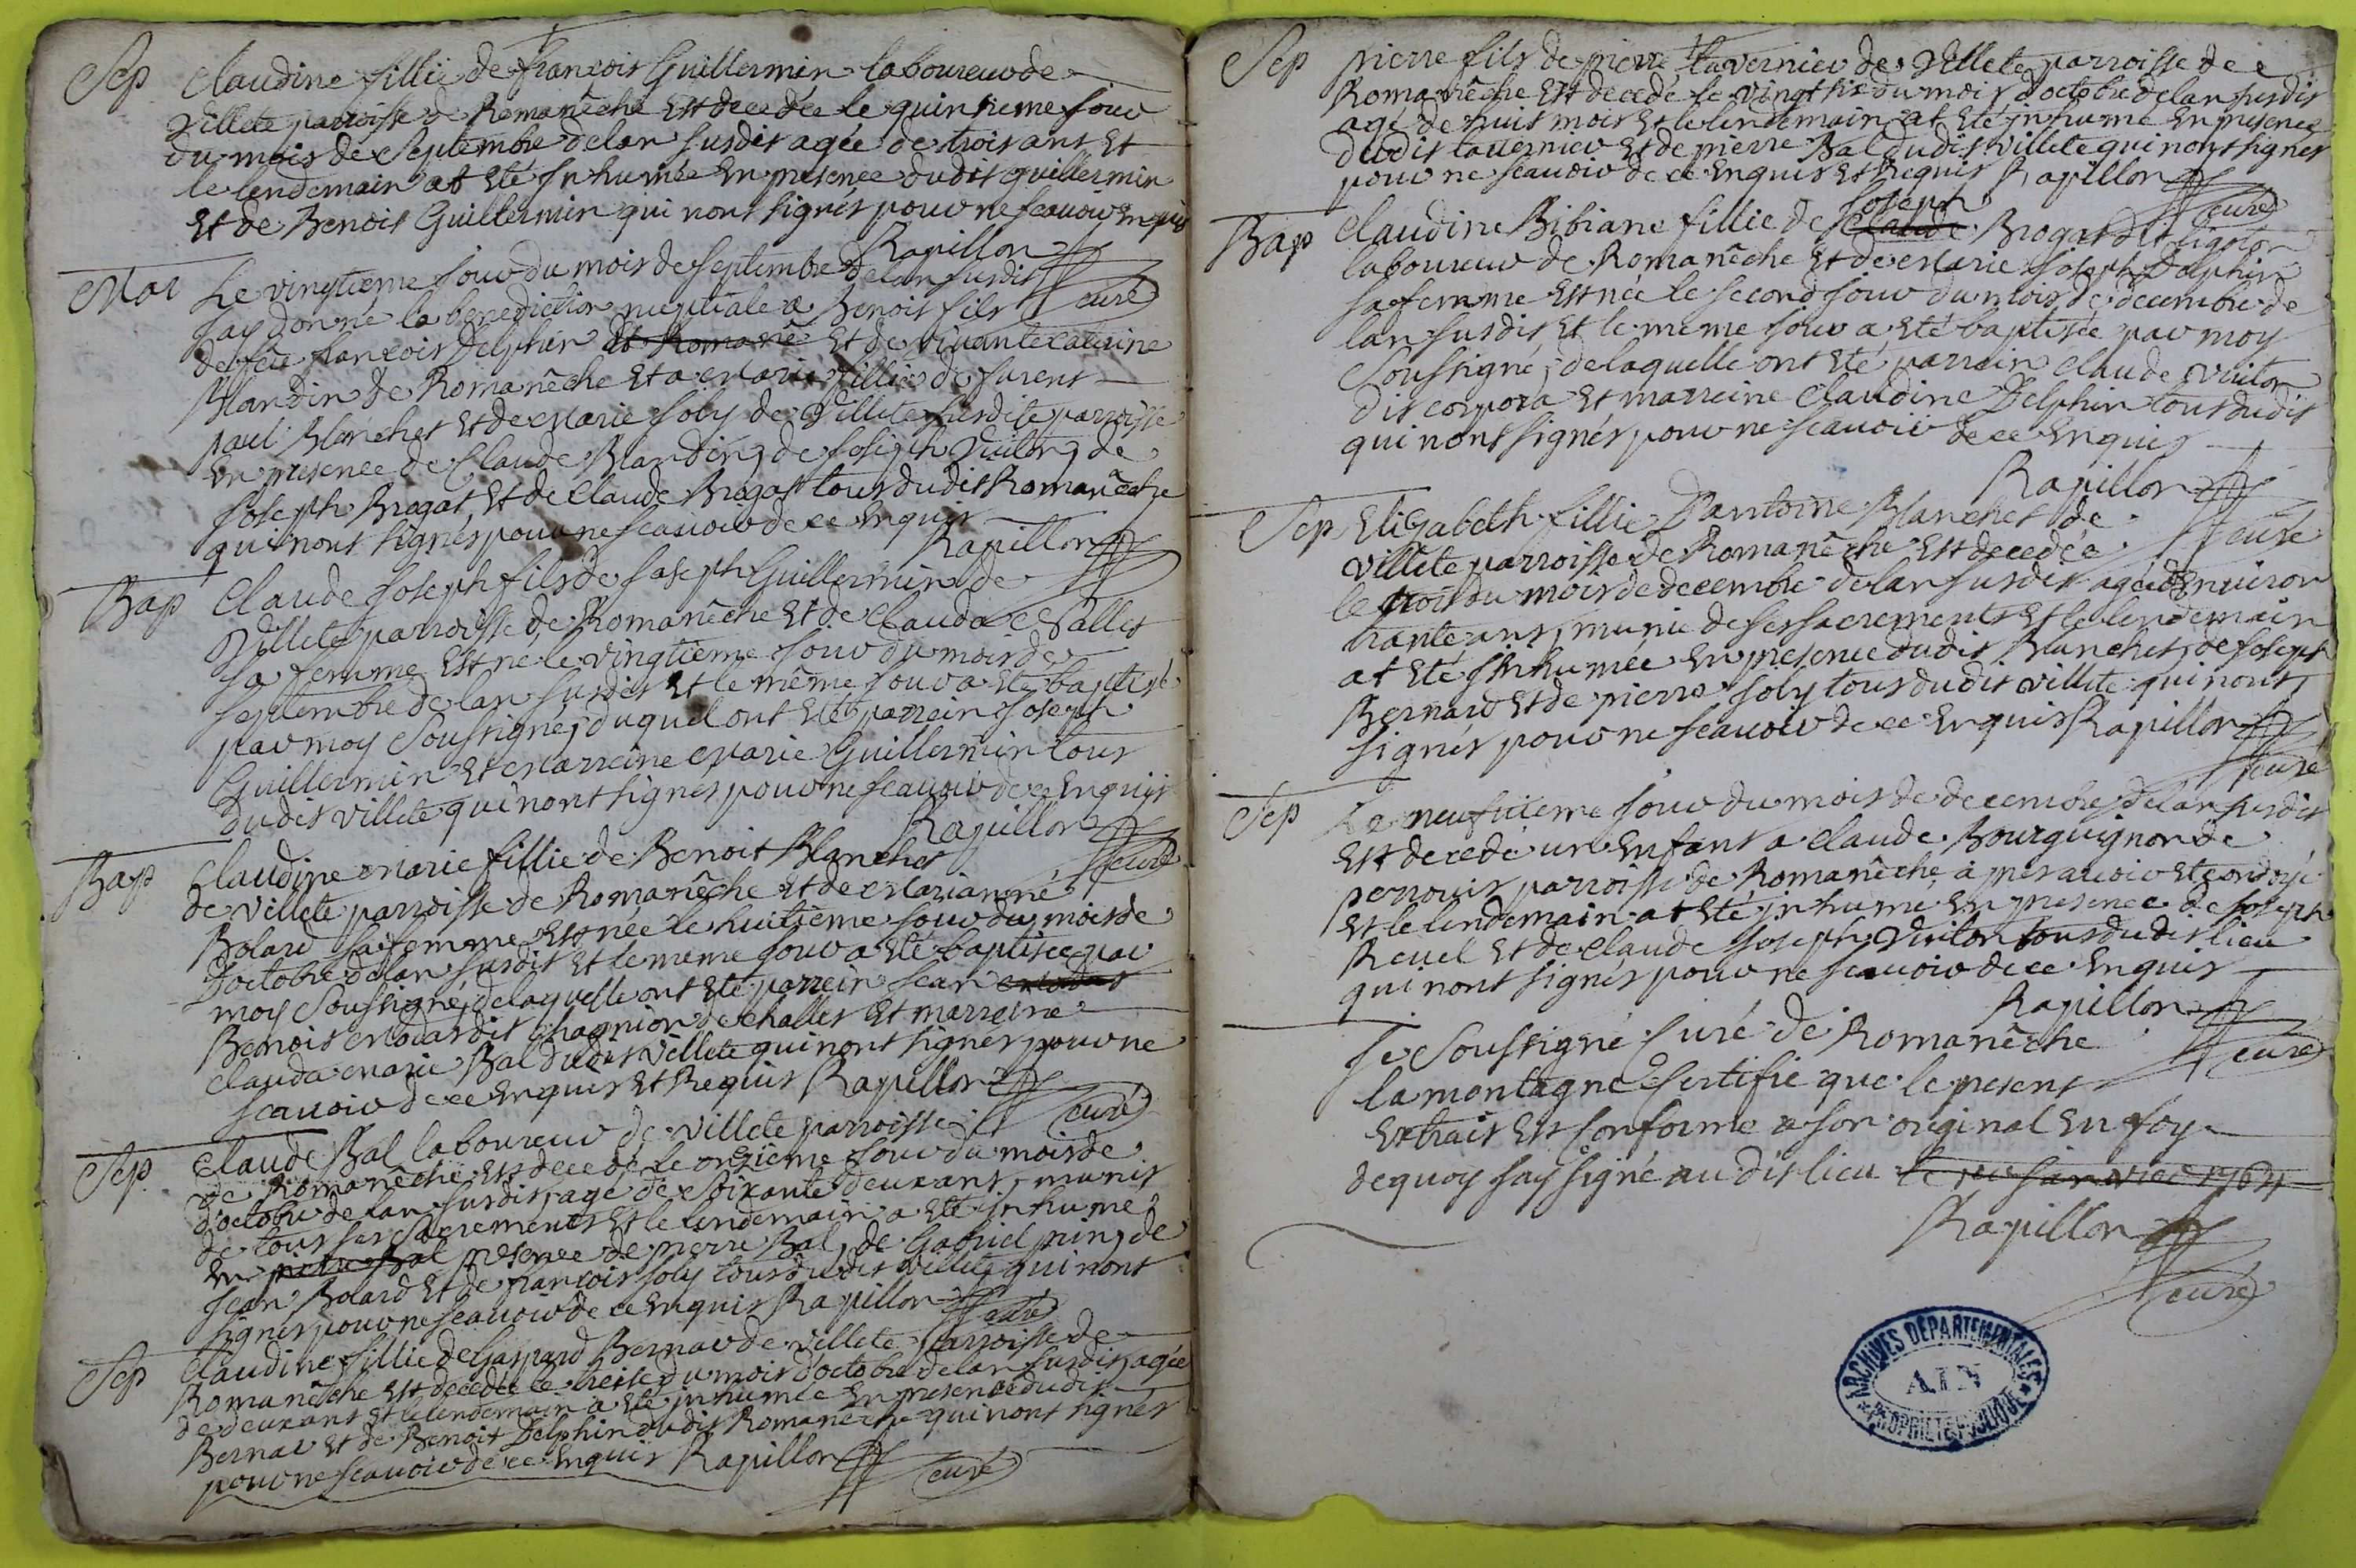 Sep Claudine fillie de françois Guillermin laboureur de
Villete parroisse de Romanêche Est decedée le quinsieme jour
du mois de Septembre de lan susdit agée de trois ans Et
le lendemain at Eté Inhumée En presence dudit guillermin
Et de Benoit Guillermin qui nont signés pour ne scauoir Enquis
Rapillon curé
Mar Le vingtieme jour du mois de septembre de lan susdit
Jay donné la benediction nuptiale a Benoit fils
de feu francois Delphin dt Romanê Et de viuante caterine
Blandin de Romanêche Et a Marie fillie de furent
paul Blanchet Et de Marie Joly de Villete susdite parroisse
En presence de Claude Blandin, de Joseph Vuiton, de
Joseph Brogat, Et de Claude Brogat tous dudit Romanêche
qui nont signés pour ne scauoir de ce Enquis
Rapillon
Bap Claude Joseph fils de Joseph Guillermin de
Villete parroisse de Romanêche Et de Clauda Salles
sa femme Est né le vingtieme jour du mois de
septembre de lan susdit Et le même jour a Eté baptisé
par moy Soussigné, duquel ont Eté parrein Joseph
Guillermin Et Marreine Marie Guillermin tous
dudit Villete qui nont signes pour ne scauoir de ce Enquis
Rapillon curé
Bap Claudine Marie fillie de Benoit Blanchet
de Villete parroisse de Romanêche Et de Marianne
Bolard sa femme Est née le huitieme jour du mois de
Doctobre de lan susdit Et le meme jour a Eté baptisée par
moy Soussigné, de laquelle ont Eté parrein Jean
Benoit dit chagnion de challes Et marreine
Clauda Marie Bal dudit Villete qui nont signes pour ne
scauoir de ce Enquis Et Requis Rapillon curé
Sep Claude Bal laboureur de Villete parroisse
de Romanêche Est decedé le onzieme jour du mois de
d'octobre de lan susdit, agé de soixante deux ans, munit
de tous ses Sacrements Et le lendemain a Eté inhumé
En pierre Bal presence de pierre Bal, de Gabriel pin, de
Jean Bolard Et de francois Joly tous dudit Villete qui nont
signés pour ne scauoir de ce Enquis Rapillon curé
Sep Claudine fillie de Gaspard Bernar de Villete parroisse de
Romanêche Est decedée le treise du mois d'octobre de lan susdit, agée
de deux ans Et le lendemain a Eté inhumée En presence dudit
Bernar Et de Benoit Delphin dudit Romanêche qui nont signés
pour ne scauoir de ce Enquis Rapillon curé
Sep pierre fils de pierre tavernier de Villete parroisse de
Romanêche Est decedé le vingt six du mois d'octobre de lan susdit
agé de huit mois Et le lendemain at Eté inhumé En presence
dudit tauernier Et de pierre Bal dudit Villete qui nont signes
pour ne scauoir de ce Enquis Et Requis Rapillon curé
Joseph
Bap Claudine Bibiane fillie de Claude Brogat dit ligoton
laboureur de Romanêche Et de Marie Joseph Delphin
sa femme Est née le second jour du mois de decembre de
lan susdit, Et le meme jour a Eté baptisée par moy
Soussigné, de laquelle ont Eté parrein Claude Vuiton
dit corpora Et marreine Claudine Delphin tous dudit
qui nont signés pour ne scauoir de ce Enquis
Rapillon curé
Sep Elisabeth fillie D'antoine Blanchet de
Villete parroisse de Romanêche Est decedée
le trois du mois de decembre de lan susdit agée Denuiron
trante ans, munie de ses sacrements Et le lendemain
at Eté Inhumée En presence dudit Blanchet, de Joseph
Bernard Et de pierre Joly tous dudit Villete qui nont
signés pour ne scauoir de ce Enquis Rapillon curé
Sep Le neufuieme jour du mois de decembre de lan susdit
Est decedé un Enfant a Claude Bourguignon de
perrouis parroisse de Romanêche, apres auoir Eté ondoyé
Et le lendemain at Eté inhumé En presence de Joseph
Reuel Et de Claude Joseph Vuiton tous dudit lieu
qui nont signés pour ne scauoir de ce Enquis
Rapillon curé
Je Soussigné Curé de Romanêche
la montagne Certifie que le present
Extrait Est Conforme a son original En foy
de quoy Jay signé audit lieu le janvier 1764
Rapillon curé
ARCHIVES DEPARTEMENTALES
AIN
PROPRIETE PUBLIQUE